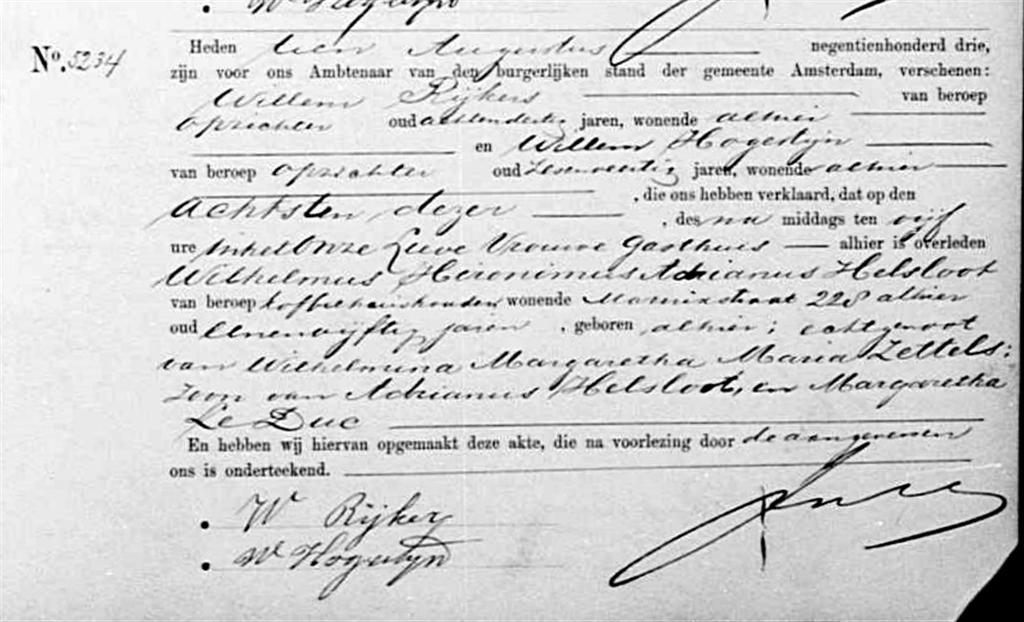 W Hogestyn
No. 5234
Heden tien Augustus negentienhonderd drie,
zijn voor ons Ambtenaar van den burgerlijken stand der gemeente Amsterdam, verschenen:
Willem Rijkers van beroep
oprichter oud achtendertig jaren, wonende alhier
en Willem Hogestyn
van beroep oprichter oud zesenveertig jaren, wonende alhier
, die ons hebben verklaard, dat op den
achtsten dezer , des na middags ten vijf
ure in het Onze Lieve Vrouwe Gasthuis alhier is overleden
Wilhelmus Hieronimus Adrianus Helsloot
van beroep koffiehuishouder wonende Marnixstraat 228 alhier
oud eenenvijftig jaren , geboren alhier; echtgenoot
van Wilhelmina Margaretha Maria Zettels;
Zoon van Adrianus Helsloot, en Margaretha
Le Duc
En hebben wij hiervan opgemaakt deze akte, die na voorlezing door de aangevers en
ons is onderteekend.
W Rijkers
W Hogestyn